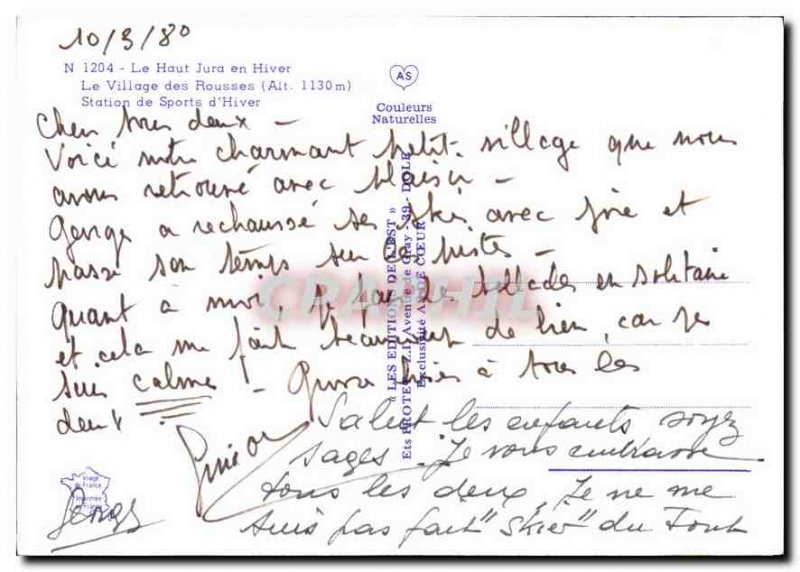 10/3/80
N 1204 - Le Haut Jura en Hiver
Le Village des Rousses (Alt. 1130 m)
Station de Sports d'Hiver
AS
Couleurs
Naturelles
Cher tous deux -
Voici notre charmant petit village que nous
avons retrouvé avec plaisir -
George a rechaussé ses skis avec joie et
passe son temps sur les pistes -
Quant à moi, je fais des ballades en solitaire
et cela me fait beaucoup de bien, car je
suis calme ! Grosses bises à tous les
deux
« LES EDITIONS DE L'EST »
Ets PROTET - Z.I. Avenue de Gray - 39 - DOLE
Exclusivité AS DE CŒUR
CPAPHIL
Salut les enfants soyez
sages. Je vous embrasse
tous les deux. Je ne me
suis pas fait "skier" du Tout
Image
de France
Imprimée
en France
George